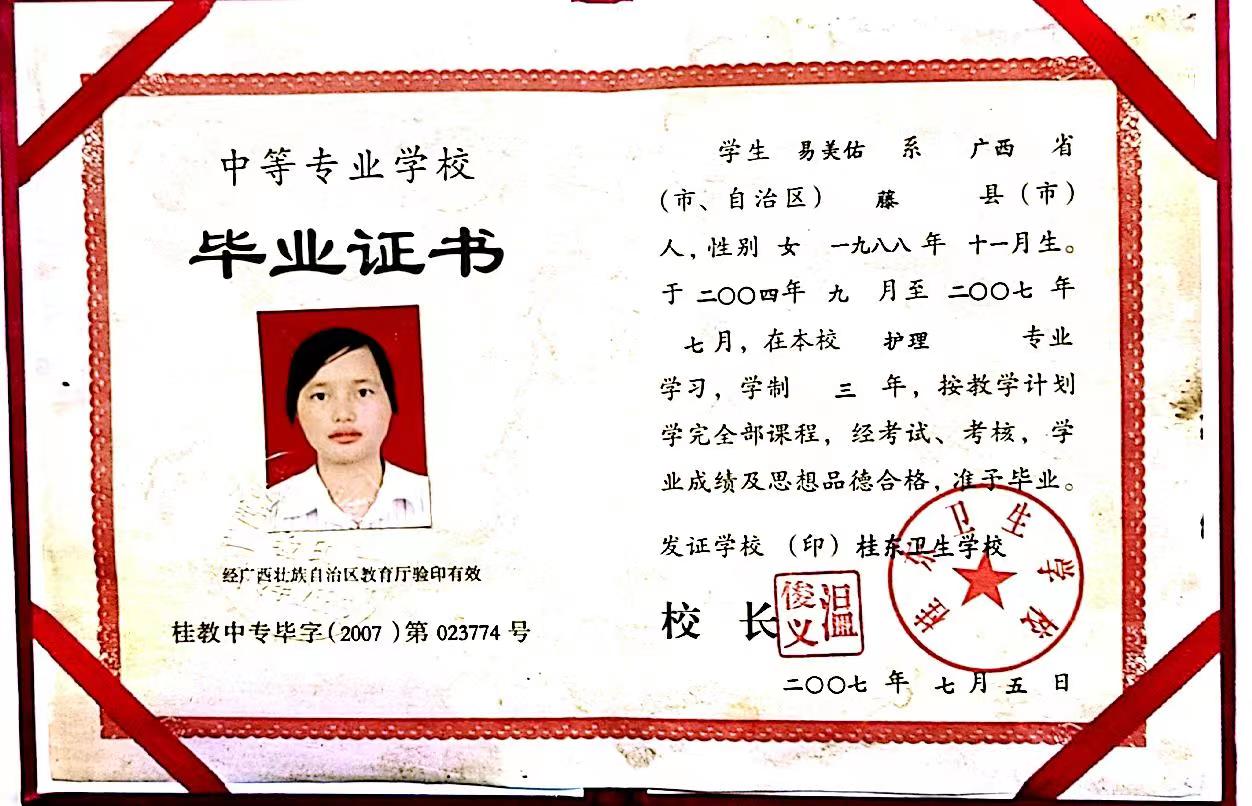 中等专业学校
毕业证书
经广西壮族自治区教育厅验印有效
桂教中专毕字(2007 )第 023774 号
学生 易美佑 系 广西 省
(市、自治区) 藤 县(市)
人，性别 女 一九八八 年 十一月生。
于 二〇〇四年 九 月至 二〇〇七 年
七月，在本校 护理 专业
学习，学制 三 年，按教学计划
学完全部课程，经考试、考核，学
业成绩及思想品德合格，准予毕业。
发证学校 (印) 桂东卫生学校
桂东卫生学校
校 长
俊义
二〇〇七 年 七月 五 日